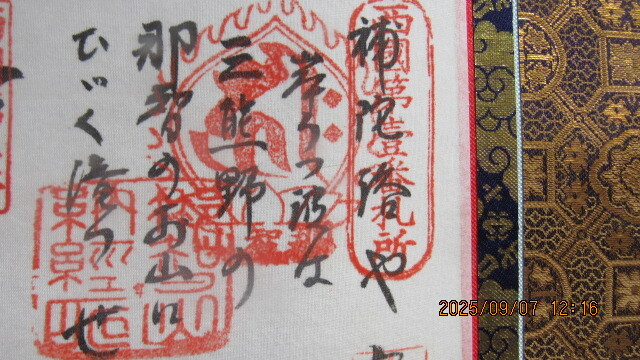 西國第壹番札所
補陀洛や
岸うつ波は
三熊野の
那智のお山に
ひゞく瀧つせ
2025/09/07 12:16